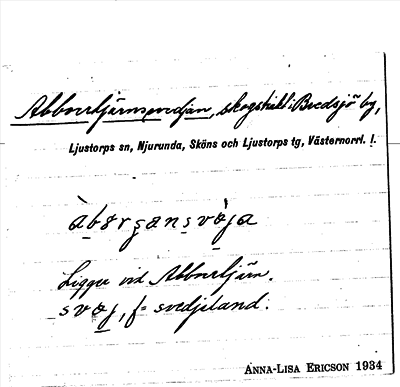 Abborrtjärnsvedjan, skogstrakt i Bredsjö by,
Ljustorps sn, Njurunda, Sköns och Ljustorps tg, Västernorrl. l.
Ligger vid Abborrtjärn.
f = svedjeland.
ANNA-LISA ERICSON 1934